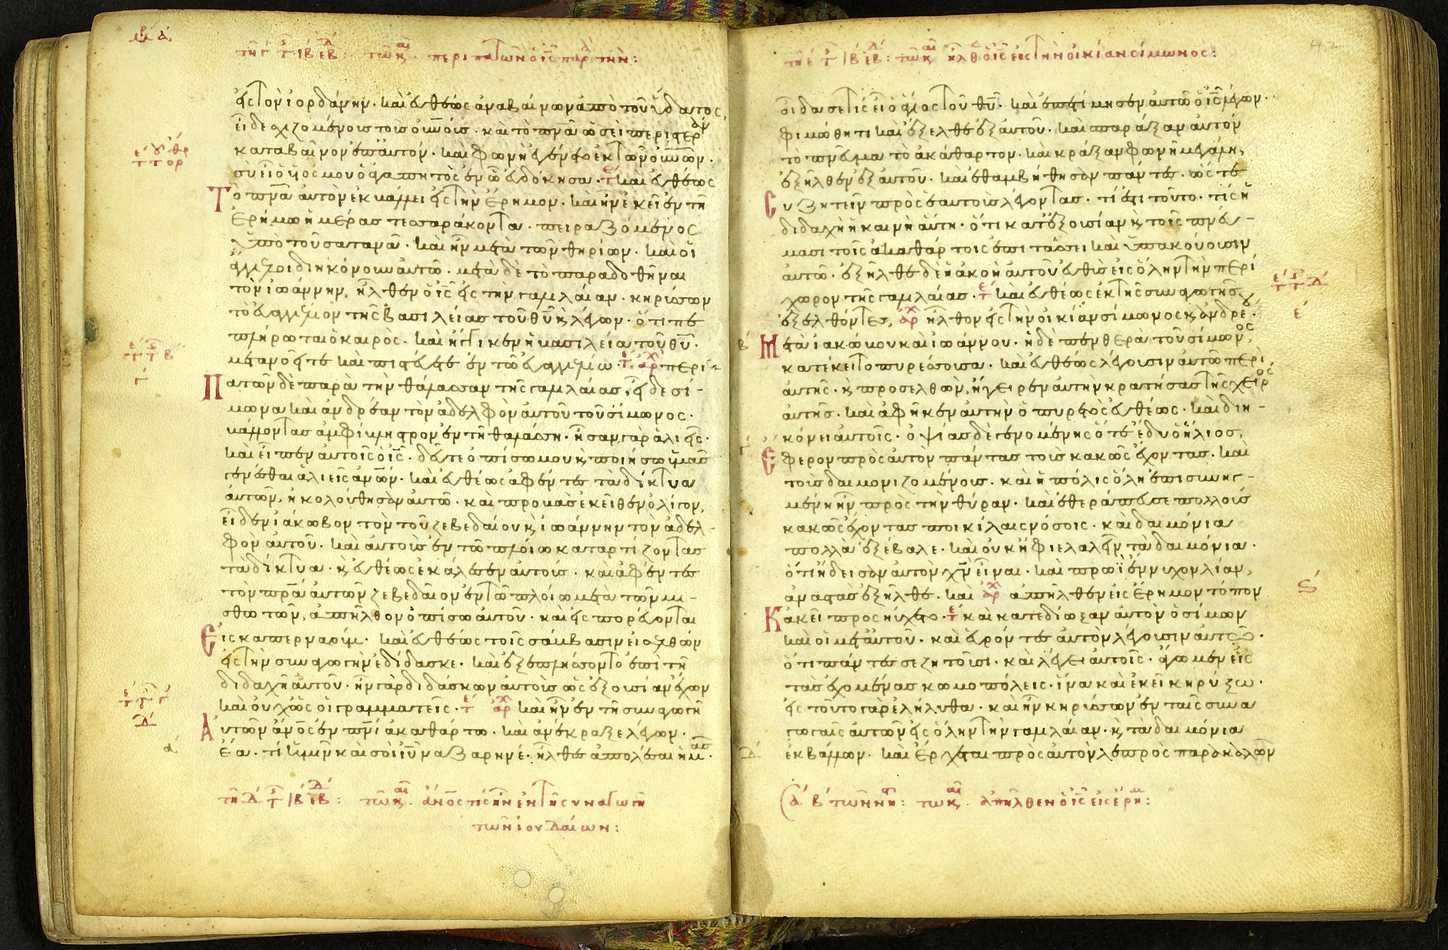 τὸν ἰορδάνην. καὶ εὐθέως ἀναβαίνων ἀπὸ τοῦ ὕδατος,
εἶδε σχιζομένους τοὺς οὐνούς. καὶ τὸ πνα ὡσεὶ περιστερὰν
καταβαῖνον ἐπ' αὐτόν. καὶ φωνὴ ἐγένετο ἐκ τῶν οὐνῶν.
σὺ εἶ ὁ υἱός μου ὁ ἀγαπητὸς ἐν ὧ εὐδόκησα. καὶ εὐθέως
Τὸ πνα αὐτὸν ἐκβάλλει εἰς τὴν ἔρημον. καὶ ἦν ἐκεῖ ἐν τῆ
ἐρήμω ἡμέρας τεσσαράκοντα. πειραζόμενος
ὑπὸ τοῦ σατανᾶ. καὶ ἦν μετὰ τῶν θηρίων. καὶ οἱ
ἄγγελοι διηκόνουν αὐτῶ. μετὰ δὲ τὸ παραδοθῆναι
τὸν ἰωάννην, ἦλθεν ὁ ις εἰς τὴν γαλιλαίαν. κηρύσσων
τὸ εὐαγγέλιον τῆς βασιλείας τοῦ θυ κ λέγων. ὅτι πε
πλήρωται ὁ καιρὸς. καὶ ἤγγικεν ἡ βασιλεία τοῦ θυ.
μετανοεῖτε καὶ πιστεύετε ἐν τῶ εὐαγγελίω. περι
Πατῶν δὲ παρὰ τὴν θάλασσαν τῆς γαλιλαίας, εἶδε σί-
μωνα καὶ ἀνδρέαν τὸν ἀδελφὸν αὐτοῦ τοῦ σίμωνος.
βάλλοντας ἀμφίβληστρον ἐν τῆ θαλάσση. ἦσαν γὰρ ἁλιεῖς.
καὶ εἶπεν αὐτοῖς ὁ ις. δεῦτε ὀπίσω μου κ ποιήσω ὑμᾶς
γενέσθαι ἁλιεῖς ἀνῶν. καὶ εὐθέως ἀφέντες τὰ δίκτυα
αὐτῶν, ἠκολούθησαν αὐτῶ. καὶ προβὰς ἐκεῖθεν ὀλίγον,
εἶδεν ἰάκωβον τὸν τοῦ ζεβεδαίου κ ἰωάννην τὸν ἀδελ-
φὸν αὐτοῦ. καὶ αὐτοὺς ἐν τῶ πλοίω καταρτίζοντας
τὰ δίκτυα. κ εὐθέως ἐκάλεσεν αὐτούς. καὶ ἀφέντες
τὸν πρα αὐτῶν ζεβεδαῖον ἐν τῶ πλοίω μετὰ τῶν μι-
σθωτῶν, ἀπῆλθον ὀπίσω αὐτοῦ. καὶ εἰσπορεύονται
Εἰς καπερναούμ. καὶ εὐθέως τοῖς σάββασιν εἰσελθὼν
εἰς τὴν συναγωγὴν ἐδίδασκε. καὶ ἐξεπλήσσοντο ἐπὶ τῆ
διδαχῆ αὐτοῦ. ἦν γὰρ διδάσκων αὐτοὺς ὡς ἐξουσίαν ἔχων
καὶ οὐχ ὡς οἱ γραμματεῖς. καὶ ἦν ἐν τῆ συναγωγῆ
Αὐτῶν ἀνος ἐν πνι ἀκαθάρτω. καὶ ἀνέκραξε λέγων.
ἔα. τί ἡμῖν καὶ σοὶ ιυ ναζαρηνέ. ἦλθες ἀπολέσαι ἡμᾶς.
τῶν ἰουδαίων:
οἶδά σε τίς εἶ ὁ ἅγιος τοῦ θυ. καὶ ἐπετίμησεν αὐτῶ ὁ ις λέγων.
φιμώθητι καὶ ἔξελθε ἐξ αὐτοῦ. καὶ σπαράξαν αὐτὸν
τὸ πνεῦμα τὸ ἀκάθαρτον. καὶ κράξαν φωνῆ μεγάλη,
ἐξῆλθεν ἐξ αὐτοῦ. καὶ ἐθαμβήθησαν πάντες. ὥστε
Συζητεῖν πρὸς ἑαυτοὺς λέγοντας. τί ἐστι τοῦτο. τίς ἡ
διδαχὴ ἡ καινὴ αὕτη. ὅτι κατ' ἐξουσίαν κ τοῖς πνεύ-
μασι τοῖς ἀκαθάρτοις ἐπιτάσσει καὶ ὑπακούουσιν
αὐτῶ. ἐξῆλθε δὲ ἡ ἀκοὴ αὐτοῦ εὐθὺς εἰς ὅλην τὴν περί
χωρον τῆς γαλιλαίας. καὶ εὐθέως ἐκ τῆς συναγωγῆς
ἐξελθόντες, ἦλθον εἰς τὴν οἰκίαν σίμωνος κ ἀνδρέου.
Μετὰ ἰακώβου καὶ ἰωάννου. ἡ δὲ πενθερὰ τοῦ σίμωνος
κατέκειτο πυρέσσουσα. καὶ εὐθέως λέγουσιν αὐτῶ περὶ
αὐτῆς. κ προσελθὼν, ἤγειρεν αὐτὴν κρατήσας τῆς χειρὸς
αὐτῆς. καὶ ἀφῆκεν αὐτὴν ὁ πυρετὸς εὐθέως. καὶ διη-
κόνει αὐτοῖς. ὀψίας δὲ γενομένης ὅτε ἔδυ ὁ ἥλιος,
Ἔφερον πρὸς αὐτὸν πάντας τοὺς κακῶς ἔχοντας. καὶ
τοὺς δαιμονιζομένους. καὶ ἡ πόλις ὅλη ἐπισυνηγ-
μένη ἦν πρὸς τὴν θύραν. καὶ ἐθεράπευσε πολλοὺς
κακῶς ἔχοντας ποικίλαις νόσοις. καὶ δαιμόνια
πολλὰ ἐξέβαλε. καὶ οὐκ ἤφιε λαλεῖν τὰ δαιμόνια.
ὅτι ἤδεισαν αὐτὸν χν εἶναι. καὶ πρωῒ ἔννυχον λίαν,
ἀναστὰς ἐξῆλθε. καὶ ἀπῆλθεν εἰς ἔρημον τόπον
Κἀκεῖ προσηύχετο. καὶ κατεδίωξαν αὐτὸν ὁ σίμων
καὶ οἱ μετ' αὐτοῦ. καὶ εὑρόντες αὐτὸν λέγουσιν αὐτῶ.
ὅτι πάντες σε ζητοῦσι. καὶ λέγει αὐτοῖς. ἄγωμεν εἰς
τὰς ἐχομένας κωμοπόλεις. ἵνα καὶ ἐκεῖ κηρύξω.
εἰς τοῦτο γὰρ ἐλήλυθα. καὶ ἦν κηρύσσων ἐν ταῖς συνα
γωγαῖς αὐτῶν εἰς ὅλην τὴν γαλιλαίαν. κ τὰ δαιμόνια
ἐκβάλλων. καὶ ἔρχεται πρὸς αὐτὸν λεπρὸς παρακαλῶν